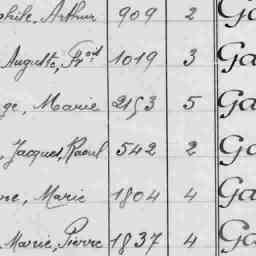 phile, Arthur 909 2 Ga
Auguste, Frod 1019 3 Ga
ge, Marie 2153 5 Ga
, Jacques, Raoul 542 2 Ga
re, Marie 1804 4 Ga
Marie, Pierre 1837 4 Ga